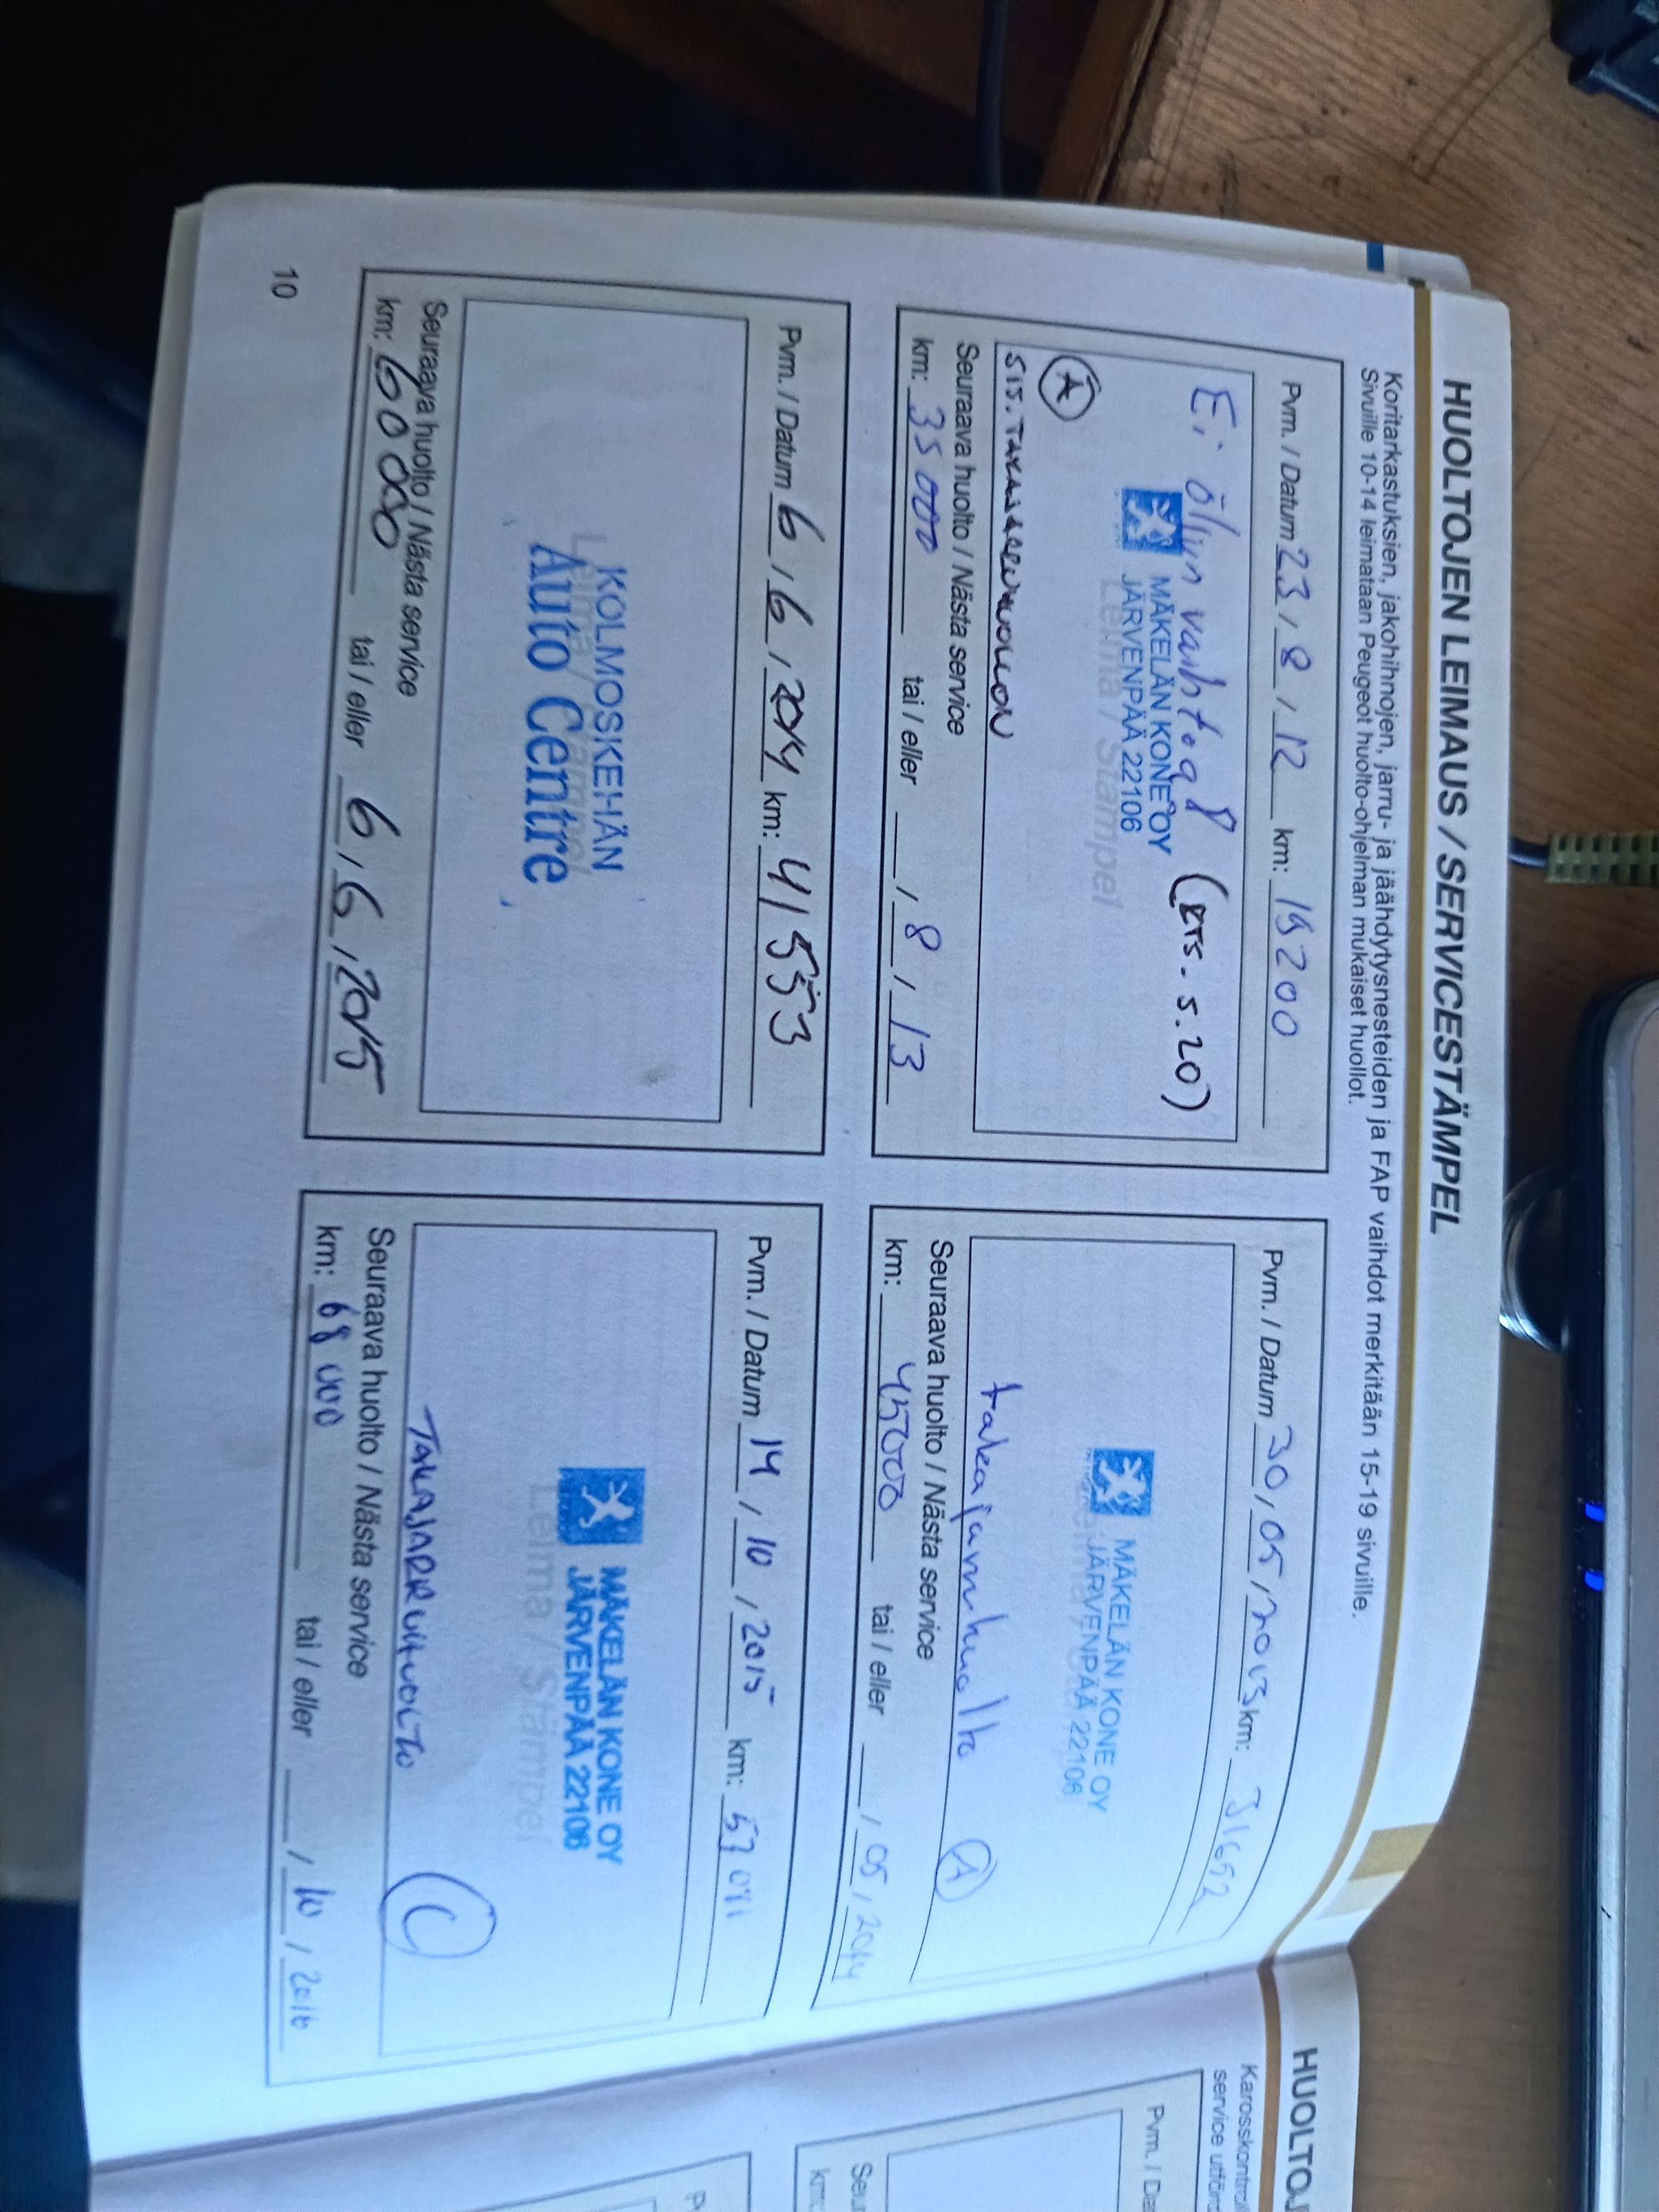 HUOLTOJEN LEIMAUS / SERVICESTÄMPEL
Koritarkastuksien, jakohihnojen, jarru- ja jäähdytysnesteiden ja FAP vaihdot merkitään 15-19 sivuille.
Sivuille 10-14 leimataan Peugeot huolto-ohjelman mukaiset huollot.
Pvm. / Datum 23 / 8 / 12 km: 19200
Ei öljyn vaihtoa! (KTS. S. 20)
MÄKELÄN KONE OY
JÄRVENPÄÄ 22106
Leima / Stämpel
A
SIS. TAKAJARRUHUOLLON
Seuraava huolto / Nästa service
km: 35 000 tai / eller / 8 / 13
Pvm. / Datum 30 / 05 / 2013 km: 31652
MÄKELÄN KONE OY
JÄRVENPÄÄ 22106
takajarruhuolto A
Seuraava huolto / Nästa service
km: 45000 tai / eller / 05 / 2014
Pvm. / Datum 6 / 6 / 2014 km: 41553
KOLMOSKEHÄN
Auto Centre
Seuraava huolto / Nästa service
km: 60 000 tai / eller 6 / 6 / 2015
Pvm. / Datum 14 / 10 / 2015 km: 53
MÄKELÄN KONE OY
JÄRVENPÄÄ 22106
Leima / Stämpel
TAKAJARRUHUOLTO C
Seuraava huolto / Nästa service
km: 68 000 tai / eller / 10 / 2016
10
HUOLTOJ
Karosskontrol
service utförd
Pvm. / Da
Seu
km: